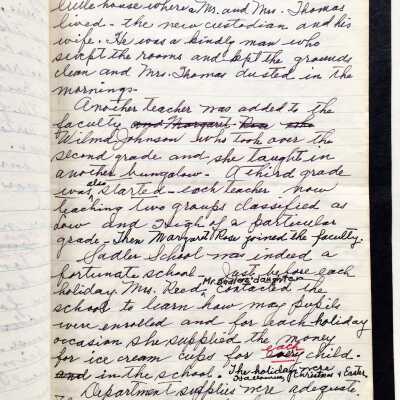 little house where a Mr. and Mrs. Thomas
lived - the new custodian and his
wife. He was a kindly man who
swept the rooms and kept the grounds
clean and Mrs. Thomas dusted in the
mornings.
Another teacher was added to the
faculty and Margaret Rose
Wilma Johnson who took over the
second grade and she taught in
another bungalow. A third grade
was also started - each teacher now
teaching two groups classified as
Low and High of a particular
grade - Then Margaret Rose joined the faculty.
Sadler School was indeed a
fortunate school - Just before each
holiday Mrs. Reed, Mr. Sadler's daughter contacted the
school to learn how may pupils
were enrolled and for each holiday
occasion she supplied the money
for ice cream cups for each child.
and in the school. The holidays were
Christmas & Easter.
Department supplies were adequate.